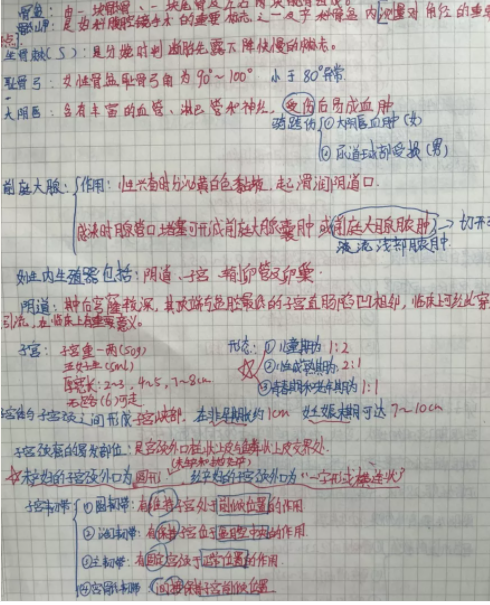 骨盆：由一块骶骨、一块尾骨及左右两块髋骨组成。
骶岬：是妇科腹腔镜手术的重要标志之一及于骨盆内测量对角径的重要
点。
坐骨棘(S)：是分娩时判断胎先露下降快慢的标志。
耻骨弓：女性骨盆耻骨弓角为90°~100° 小于80°异常.
大阴唇：含有丰富的血管、淋巴管和神经，受伤后易成血肿
骑跨伤 ①大阴唇血肿(女)
②尿道球部受损(男)
前庭大腺：作用：性兴奋时分泌黄白色黏液，起润滑阴道口.
感染时腺管口堵塞可形成前庭大腺囊肿或前庭大腺脓肿→切开
浅部脓肿
女性内生殖器包括：阴道、子宫、输卵管及卵巢.
阴道：后穹窿较深，其顶端与盆腔最低的子宫直肠陷凹相邻，临床上可经此穿
引流，在临床上有重要意义。
子宫：子宫重一两(50g) 形态：①儿童期为1:2
五好生(5ml) ②性成熟期为2:1
厚宽长：2~3、4~5、7~8cm ③青春期和老年期为1:1
子宫体与子宫颈之间形成子宫峡部，在非孕期长约1cm 妊娠末期可达7~10cm
子宫颈癌的好发部位：是宫颈外口柱状上皮与鳞状上皮交界处.
☆未产妇的子宫颈外口为圆形；经产妇的子宫颈外口为"一字形或横裂状"
子宫韧带 ①圆韧带：有维持子宫处于前倾位置的作用
②阔韧带：有保持子宫位于盆腔中央的作用.
③主韧带：有固定宫颈于正常位置的作用.
④宫骶韧带：间接保持子宫前倾位置